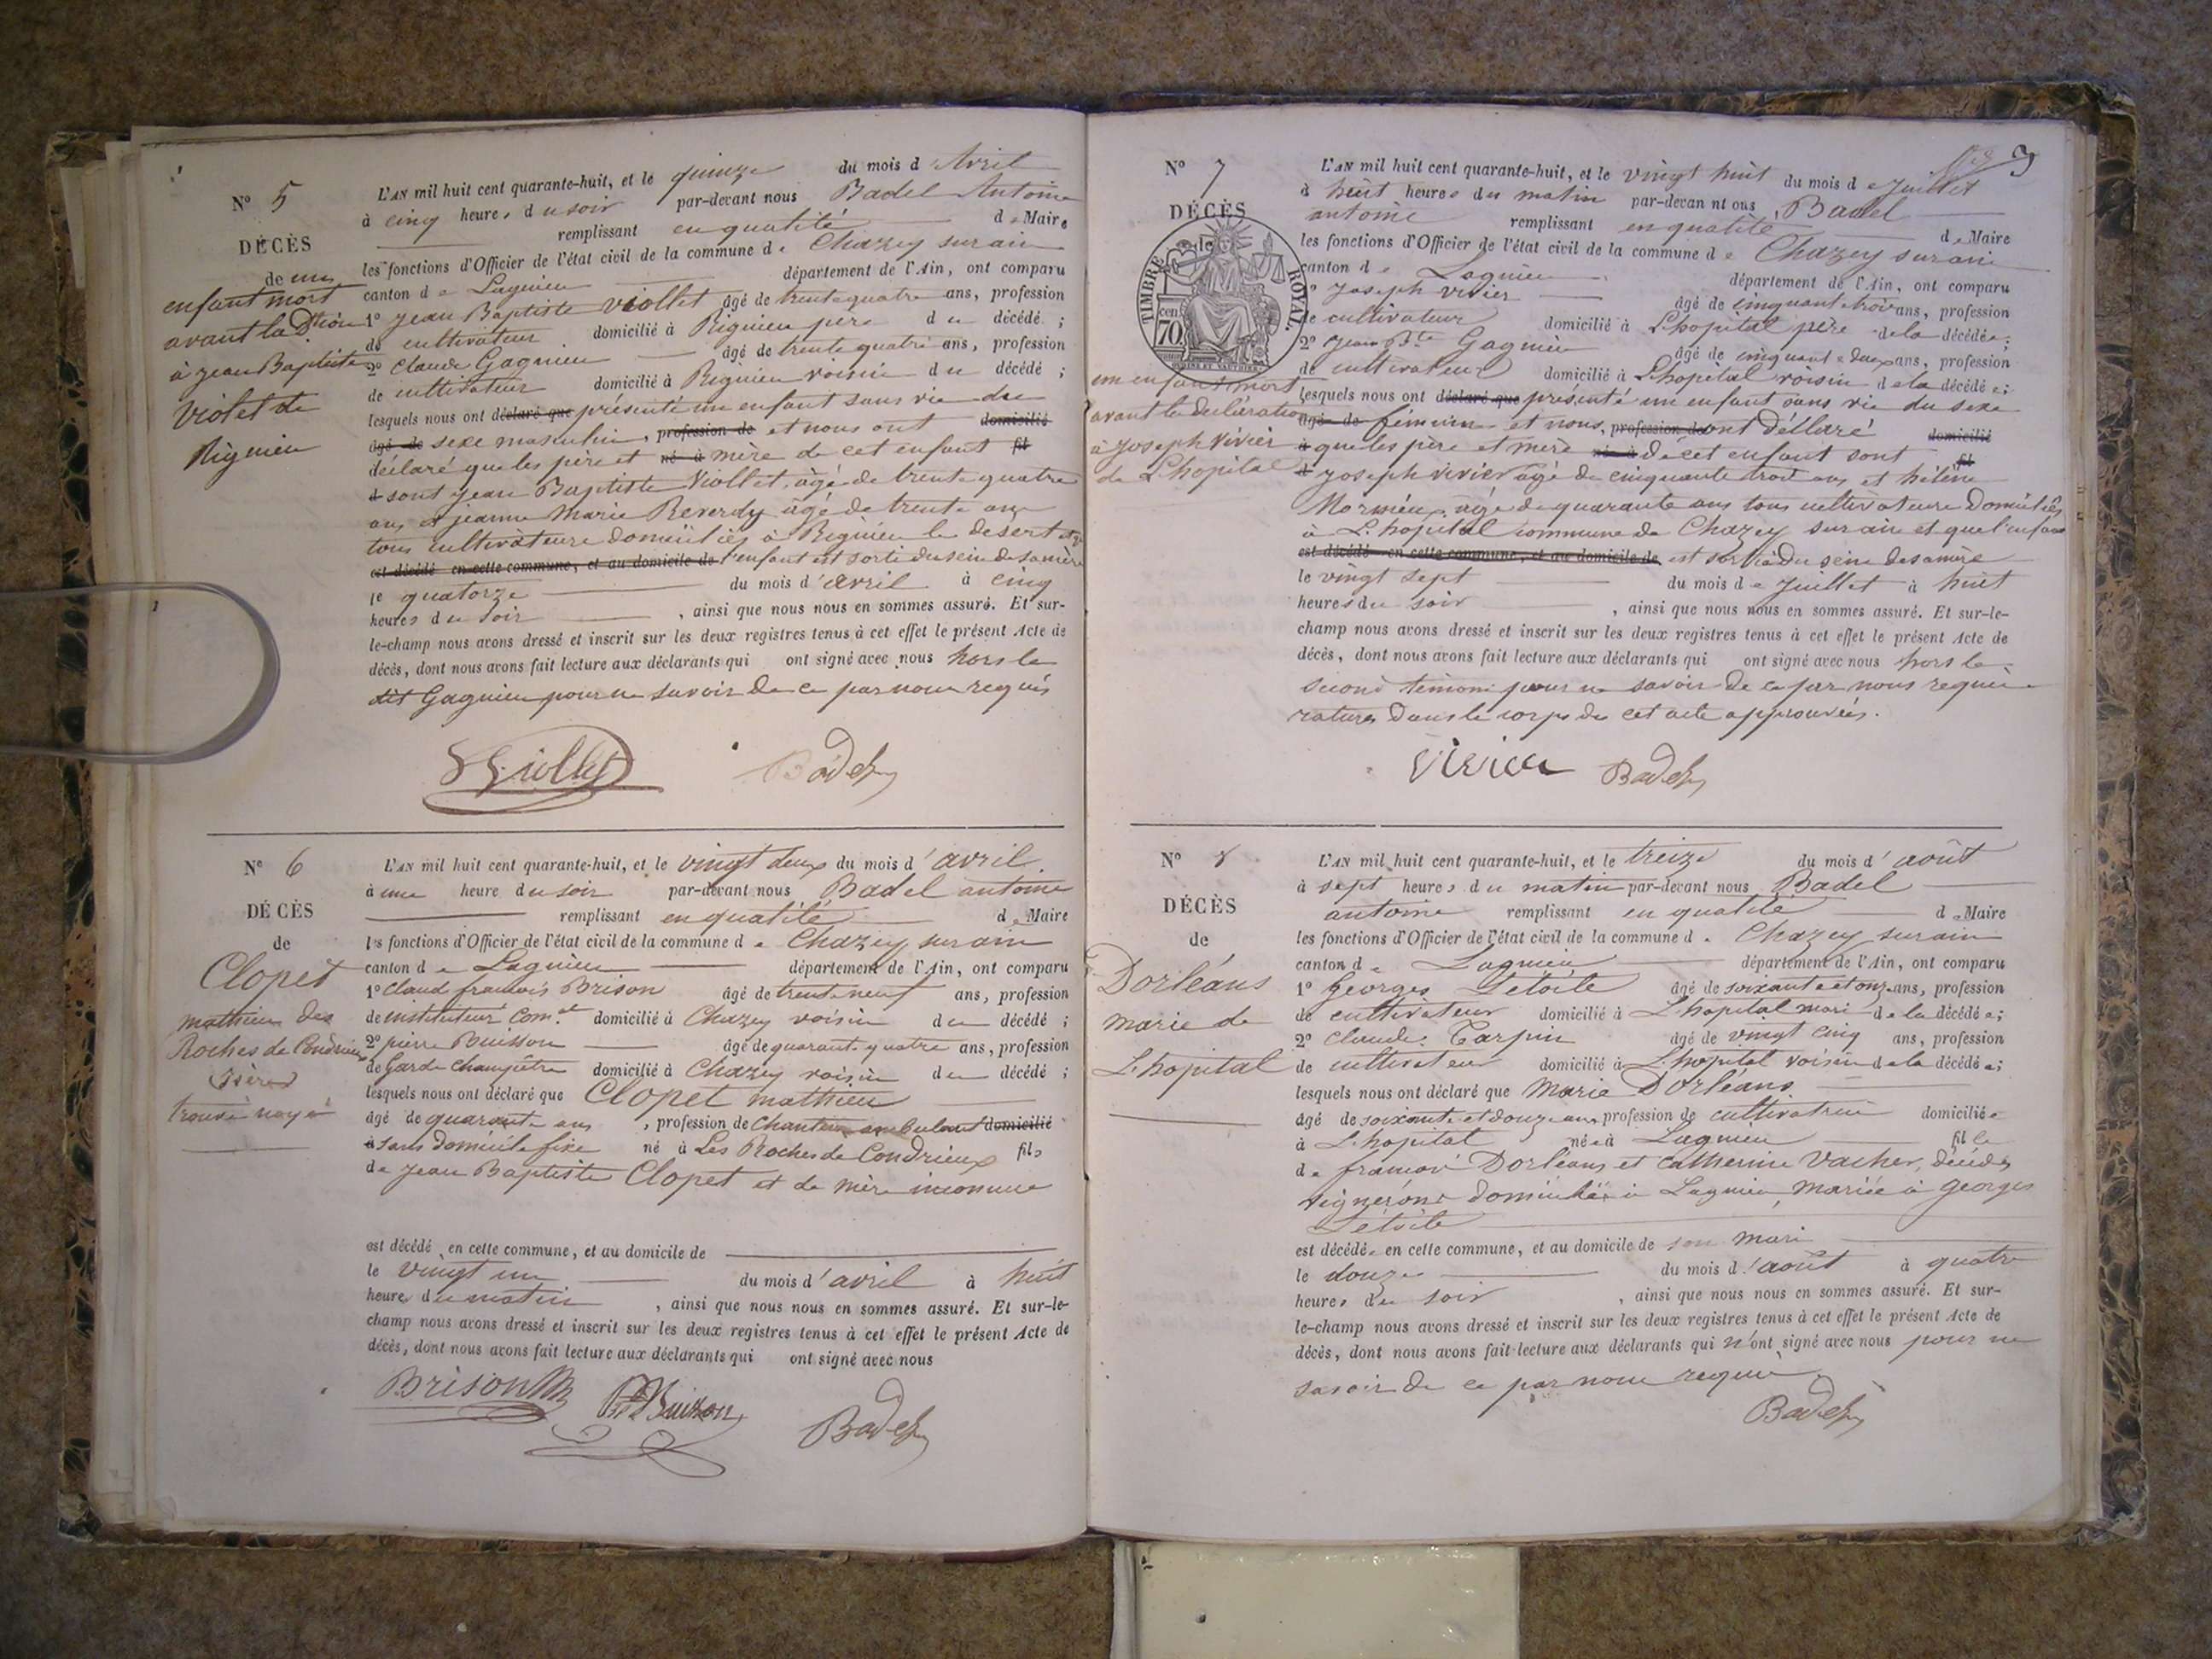 N° 5
DÉCÈS
de un
enfant mort
avant la Dtion
à jean Baptiste
Violet de
Rignieu
L'AN mil huit cent quarante-huit, et le quinze du mois d Avril
à cinq heures du soir par-devant nous Badel Antoine
remplissant en qualité de Maire
les fonctions d'Officier de l'état civil de la commune de Chazey sur ain
canton de Lagnieu département de l'Ain, ont comparu
1° Jean Baptiste Viollet âgé de trente quatre ans, profession
de cultivateur domicilié à Rignieu père du décédé ;
2° Claude Gagnieu âgé de trente quatre ans, profession
de cultivateur domicilié à Rignieu voisin du décédé ;
lesquels nous ont déclaré que présenté un enfant sans vie du
âgé de sexe masculin, profession de et nous ont domicilié
déclaré que les père et né à mère de cet enfant fil
d sont jean Baptiste Viollet, âgé de trente quatre
ans et jeanne Marie Reverdy âgé de trente ans
tous cultivateurs domiciliés à Rignieu le desert et q
est décédé en cette commune, et au domicile de l'enfant est sorti du sein de sa mère
le quatorze du mois d'avril à cinq
heures du soir , ainsi que nous nous en sommes assuré. Et sur-
le-champ nous avons dressé et inscrit sur les deux registres tenus à cet effet le présent Acte de
décès, dont nous avons fait lecture aux déclarants qui ont signé avec nous hors le
dit Gagnieu pour ne savoir de ce par nous requis
Viollet Badel
N° 6
DÉCÈS
de
Clopet
mathieu des
Roches de Condrieux
Isère
trouvé noyé
L'AN mil huit cent quarante-huit, et le vingt deux du mois d'avril
à une heure du soir par-devant nous Badel antoine
remplissant en qualité de Maire
les fonctions d'Officier de l'état civil de la commune de Chazey sur ain
canton de Lagnieu département de l'Ain, ont comparu
1° Claud francois Brison âgé de trente neuf ans, profession
de instituteur Com.al domicilié à Chazey voisin du décédé ;
2° pierre Buisson âgé de quarante quatre ans, profession
de Garde champêtre domicilié à Chazey voisin du décédé ;
lesquels nous ont déclaré que Clopet mathieu
âgé de quarante ans , profession de Chanteur ambulant domicilié
à sans domicile fixe né à Les Roches de Condrieux fils
de Jean Baptiste Clopet et de mère inconnue
est décédé en cette commune, et au domicile de
le vingt un du mois d'avril à huit
heures du matin , ainsi que nous nous en sommes assuré. Et sur-le-
champ nous avons dressé et inscrit sur les deux registres tenus à cet effet le présent Acte de
décès, dont nous avons fait lecture aux déclarants qui ont signé avec nous
Brison Buisson Badel
3
N° 7
DÉCÈS
TIMBRE ROYAL.
70 cen
un enfant mort
avant la declaration
à joseph Vivier
de L'hopital
L'AN mil huit cent quarante-huit, et le vingt huit du mois de Juillet
à huit heures du matin par-devan nt ous Badel
antoine remplissant en qualité de Maire
les fonctions d'Officier de l'état civil de la commune de Chazey sur ain
canton de Lagnieu département de l'Ain, ont comparu
1° Joseph vivier âgé de cinquante trois ans, profession
de cultivateur domicilié à L'hopital père de la décédée ;
2° Jean Bte Gagnieu âgé de cinquante deux ans, profession
de cultivateur domicilié à L'hopital voisin de la décédée ;
lesquels nous ont déclaré que présenté un enfant sans vie du sexe
âgé de féminin et nous, profession de ont déclaré domicilié
à que les père et mère né à de cet enfant sont fil
d joseph vivier âgé de cinquante trois ans et hélène
Morniéu, âgé de quarante ans tous cultivateurs Domiciliés
à L'hopital commune de Chazey sur ain et que l'enfant
est décédé en cette commune, et au domicile de est sorti du sein de sa mère
le vingt sept du mois de Juillet à huit
heures du soir , ainsi que nous nous en sommes assuré. Et sur-le-
champ nous avons dressé et inscrit sur les deux registres tenus à cet effet le présent Acte de
décès, dont nous avons fait lecture aux déclarants qui ont signé avec nous hors le
second témoin pour ne savoir de ce par nous requis
ratures dans le corps de cet acte approuvées.
Vivier Badel
N° 8
DÉCÈS
de
Dorléans
marie de
L'hopital
L'AN mil huit cent quarante-huit, et le treize du mois d'août
à sept heures du matin par-devant nous Badel
antoine remplissant en qualité de Maire
les fonctions d'Officier de l'état civil de la commune de Chazey sur ain
canton de Lagnieu département de l'Ain, ont comparu
1° Georges Létoile âgé de soixante et onze ans, profession
de cultivateur domicilié à L'hopital mari de la décédée ;
2° Claude Tarpin âgé de vingt cinq ans, profession
de cultivateur domicilié à L'hopital voisin de la décédée ;
lesquels nous ont déclaré que Marie Dorléans
âgé de soixante et douze ans, profession de cultivatrice domiciliée
à L'hopital née à Lagnieu fille
de francois Dorléans et catherine Vacher, décédés
vignerons domiciliés à Lagnieu, mariée à georges
Létoile
est décédée en cette commune, et au domicile de son mari
le douze du mois d'août à quatre
heures du soir , ainsi que nous nous en sommes assuré. Et sur-
le-champ nous avons dressé et inscrit sur les deux registres tenus à cet effet le présent Acte de
décès, dont nous avons fait lecture aux déclarants qui n'ont signé avec nous pour ne
savoir de ce par nous requis
Badel